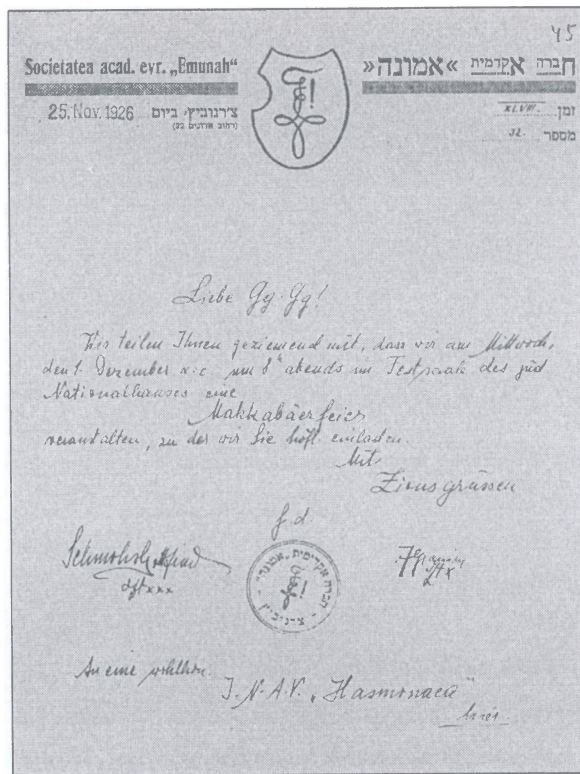 45
Societatea acad. evr. „Emunah"
חברה אקדמית »אמונה«
25. Nov. 1926 צ'רנוביץ, ביום
זמן XLVIII.
מספר 32.
Liebe Gg. Gg!
Wir teilen Ihnen geziemend mit, dass wir am Mittwoch,
den 1. Dezember a. c. um 8h abends im Festsaale des jüd
Nationalhauses eine
Makkabäerfeier
veranstalten, zu der wir Sie höfl. einladen.
Mit
Zionsgrüssen
f. d.
xxx
x
חברה אקדמית „אמונה" צ'רנוביץ
An eine wohllöbl.
J. N. A. V. „Hasmonaea"
hier.